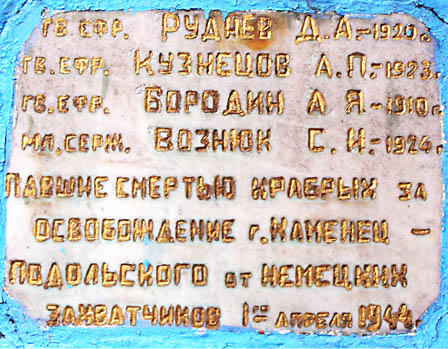 гв. ефр. Руднев Д. А. - 1920г.
гв. ефр. Кузнецов А. П. - 1923.
гв. ефр. Бородин А Я - 1910г.
мл. серж. Вознюк С. И. - 1924г.
павшие смертью храбрых за
освобождение г. Каменец -
Подольского от немецких
захватчиков 1го апреля 1944г.